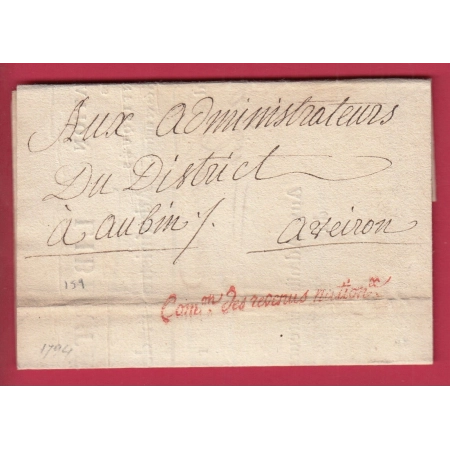 Aux Administrateurs
Du District
à aubin /. aveiron
159
Com.on des revenus nation.x
1794